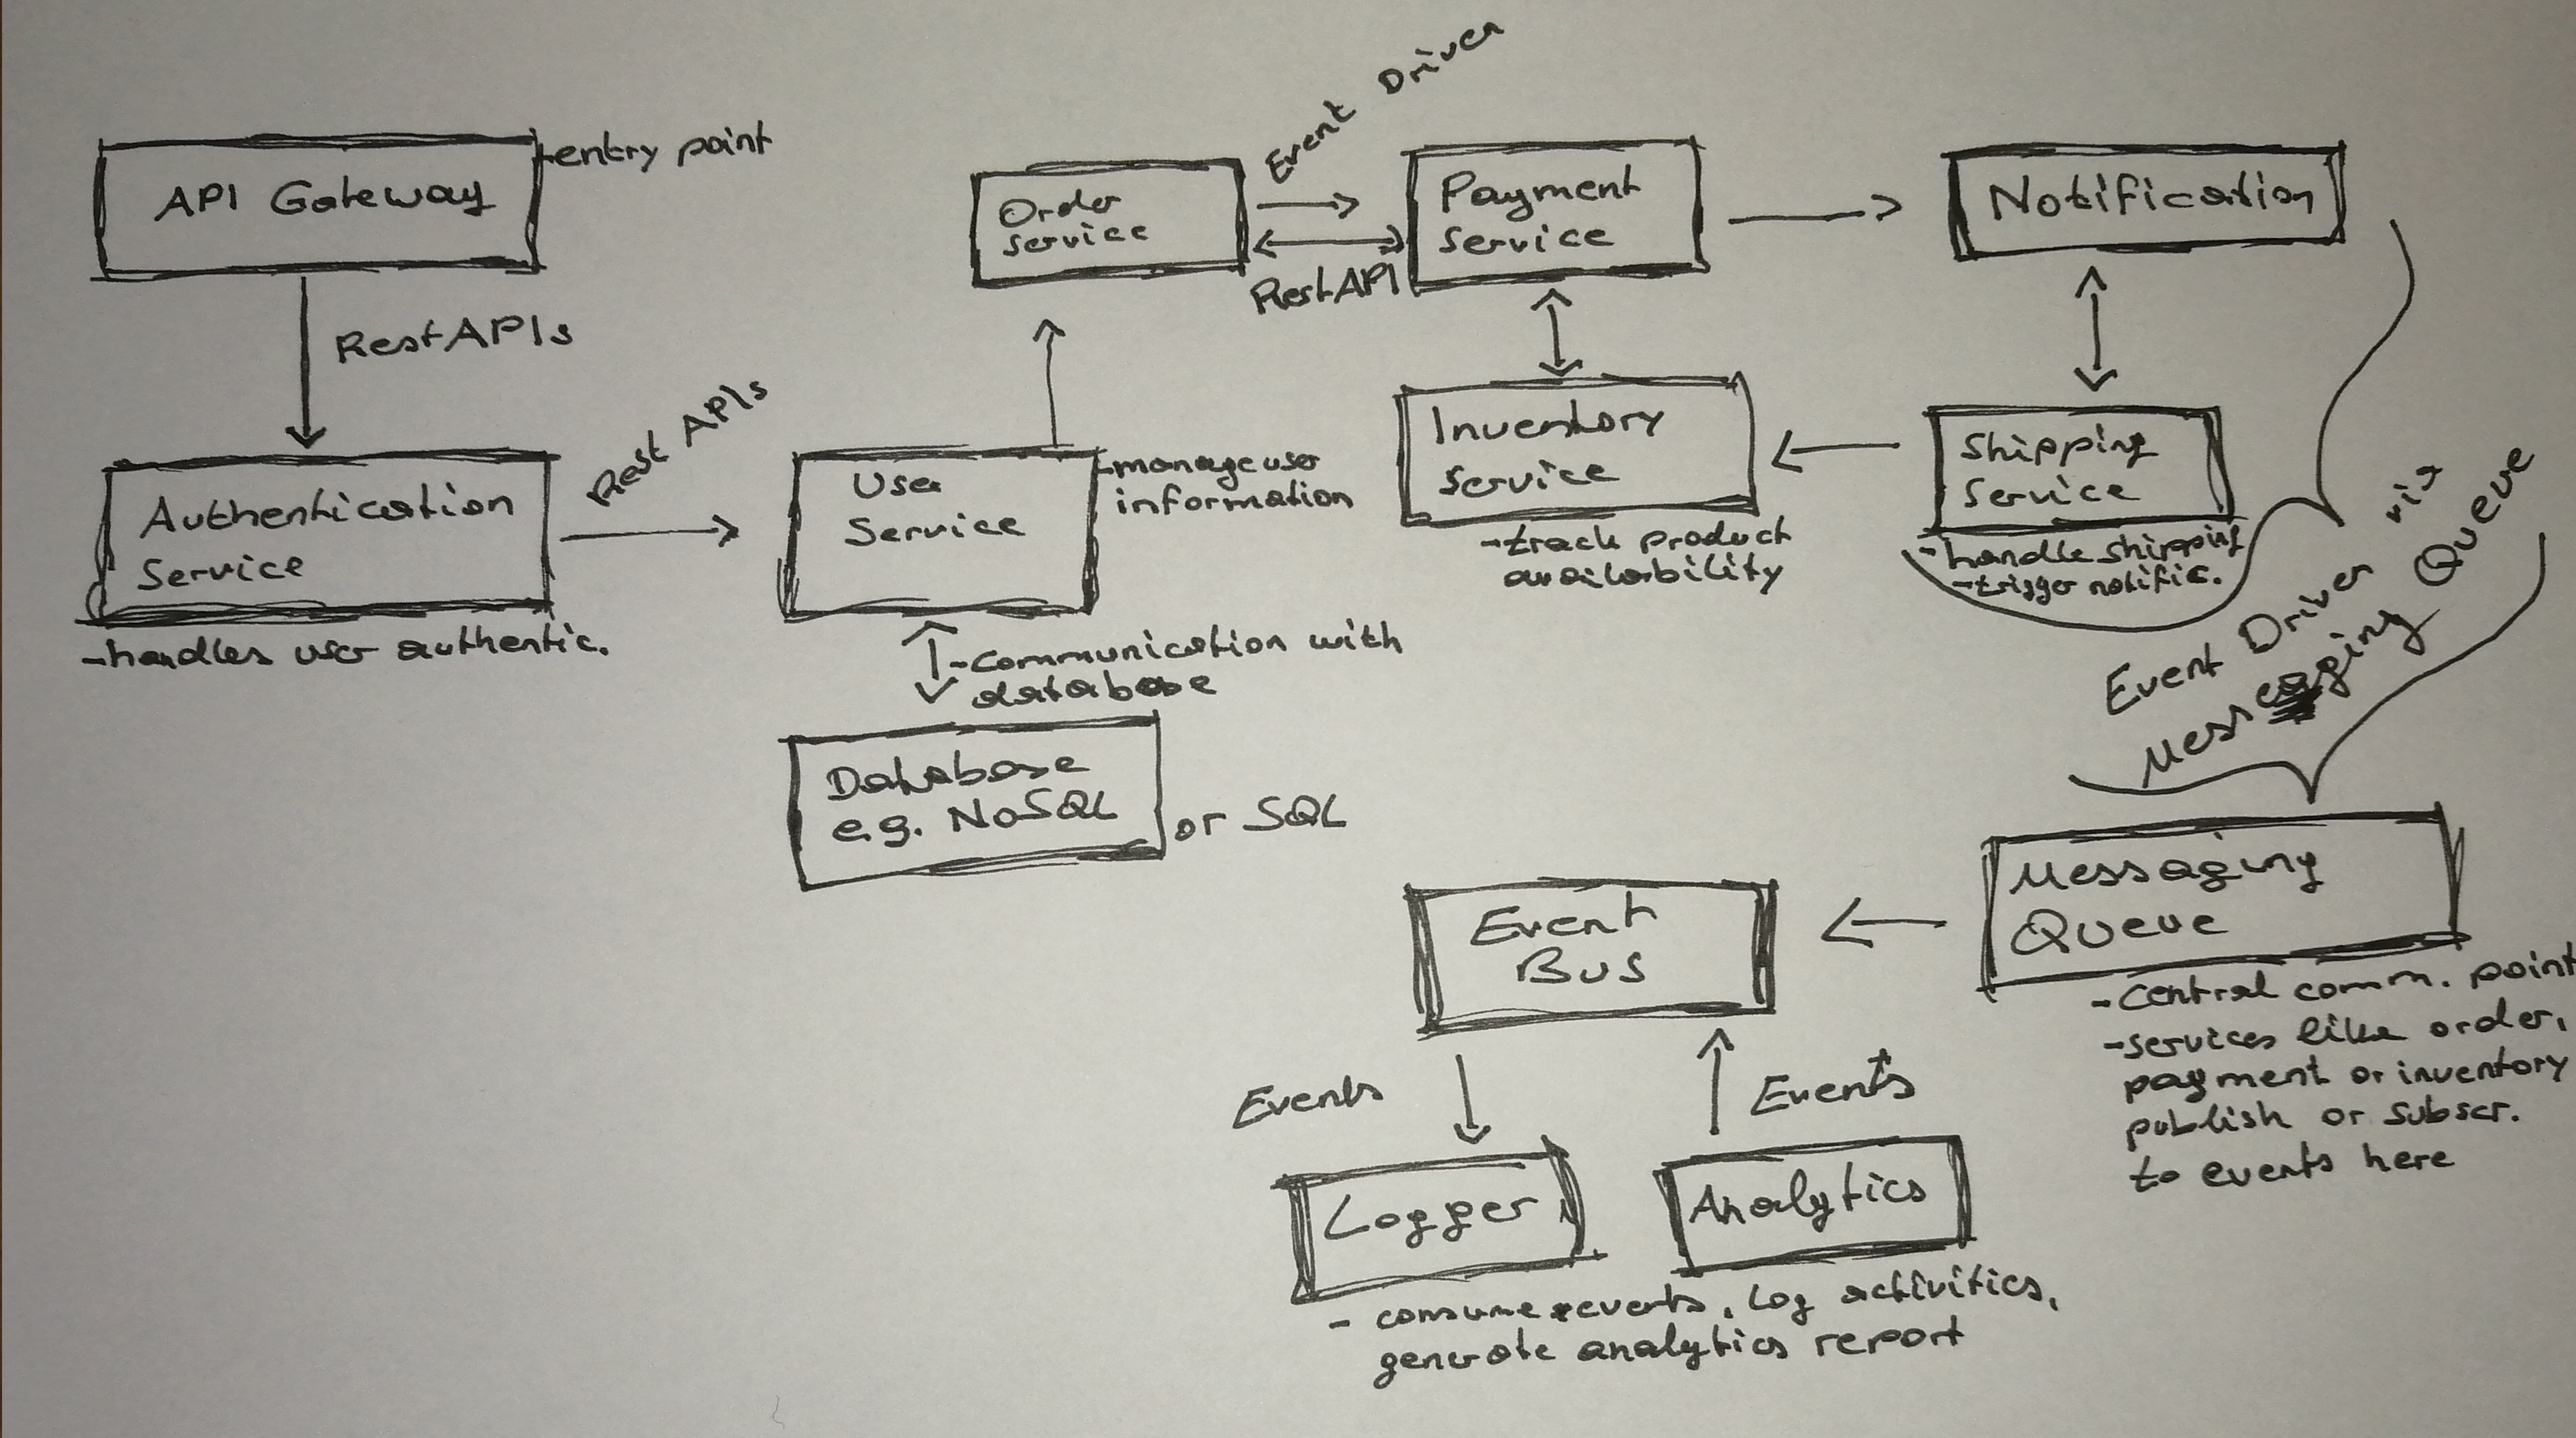 API Gateway
-entry point
RestAPIs
Authentication
Service
-handles user authentic.
Rest APIs
User
Service
-manage user
information
-communication with
database
Database
e.g. NoSQL
or SQL
Order
service
Event Driven
RestAPI
Payment
service
Notification
Inventory
service
-track product
availability
Shipping
service
-handle shipping
-trigger notific.
Event Driven via
Messaging Queue
Messaging
Queue
-central comm. point
-services like order,
payment or inventory
publish or subscr.
to events here
Event
Bus
Events
Events
Logger
Analytics
- consume events, log activities,
generate analytics report